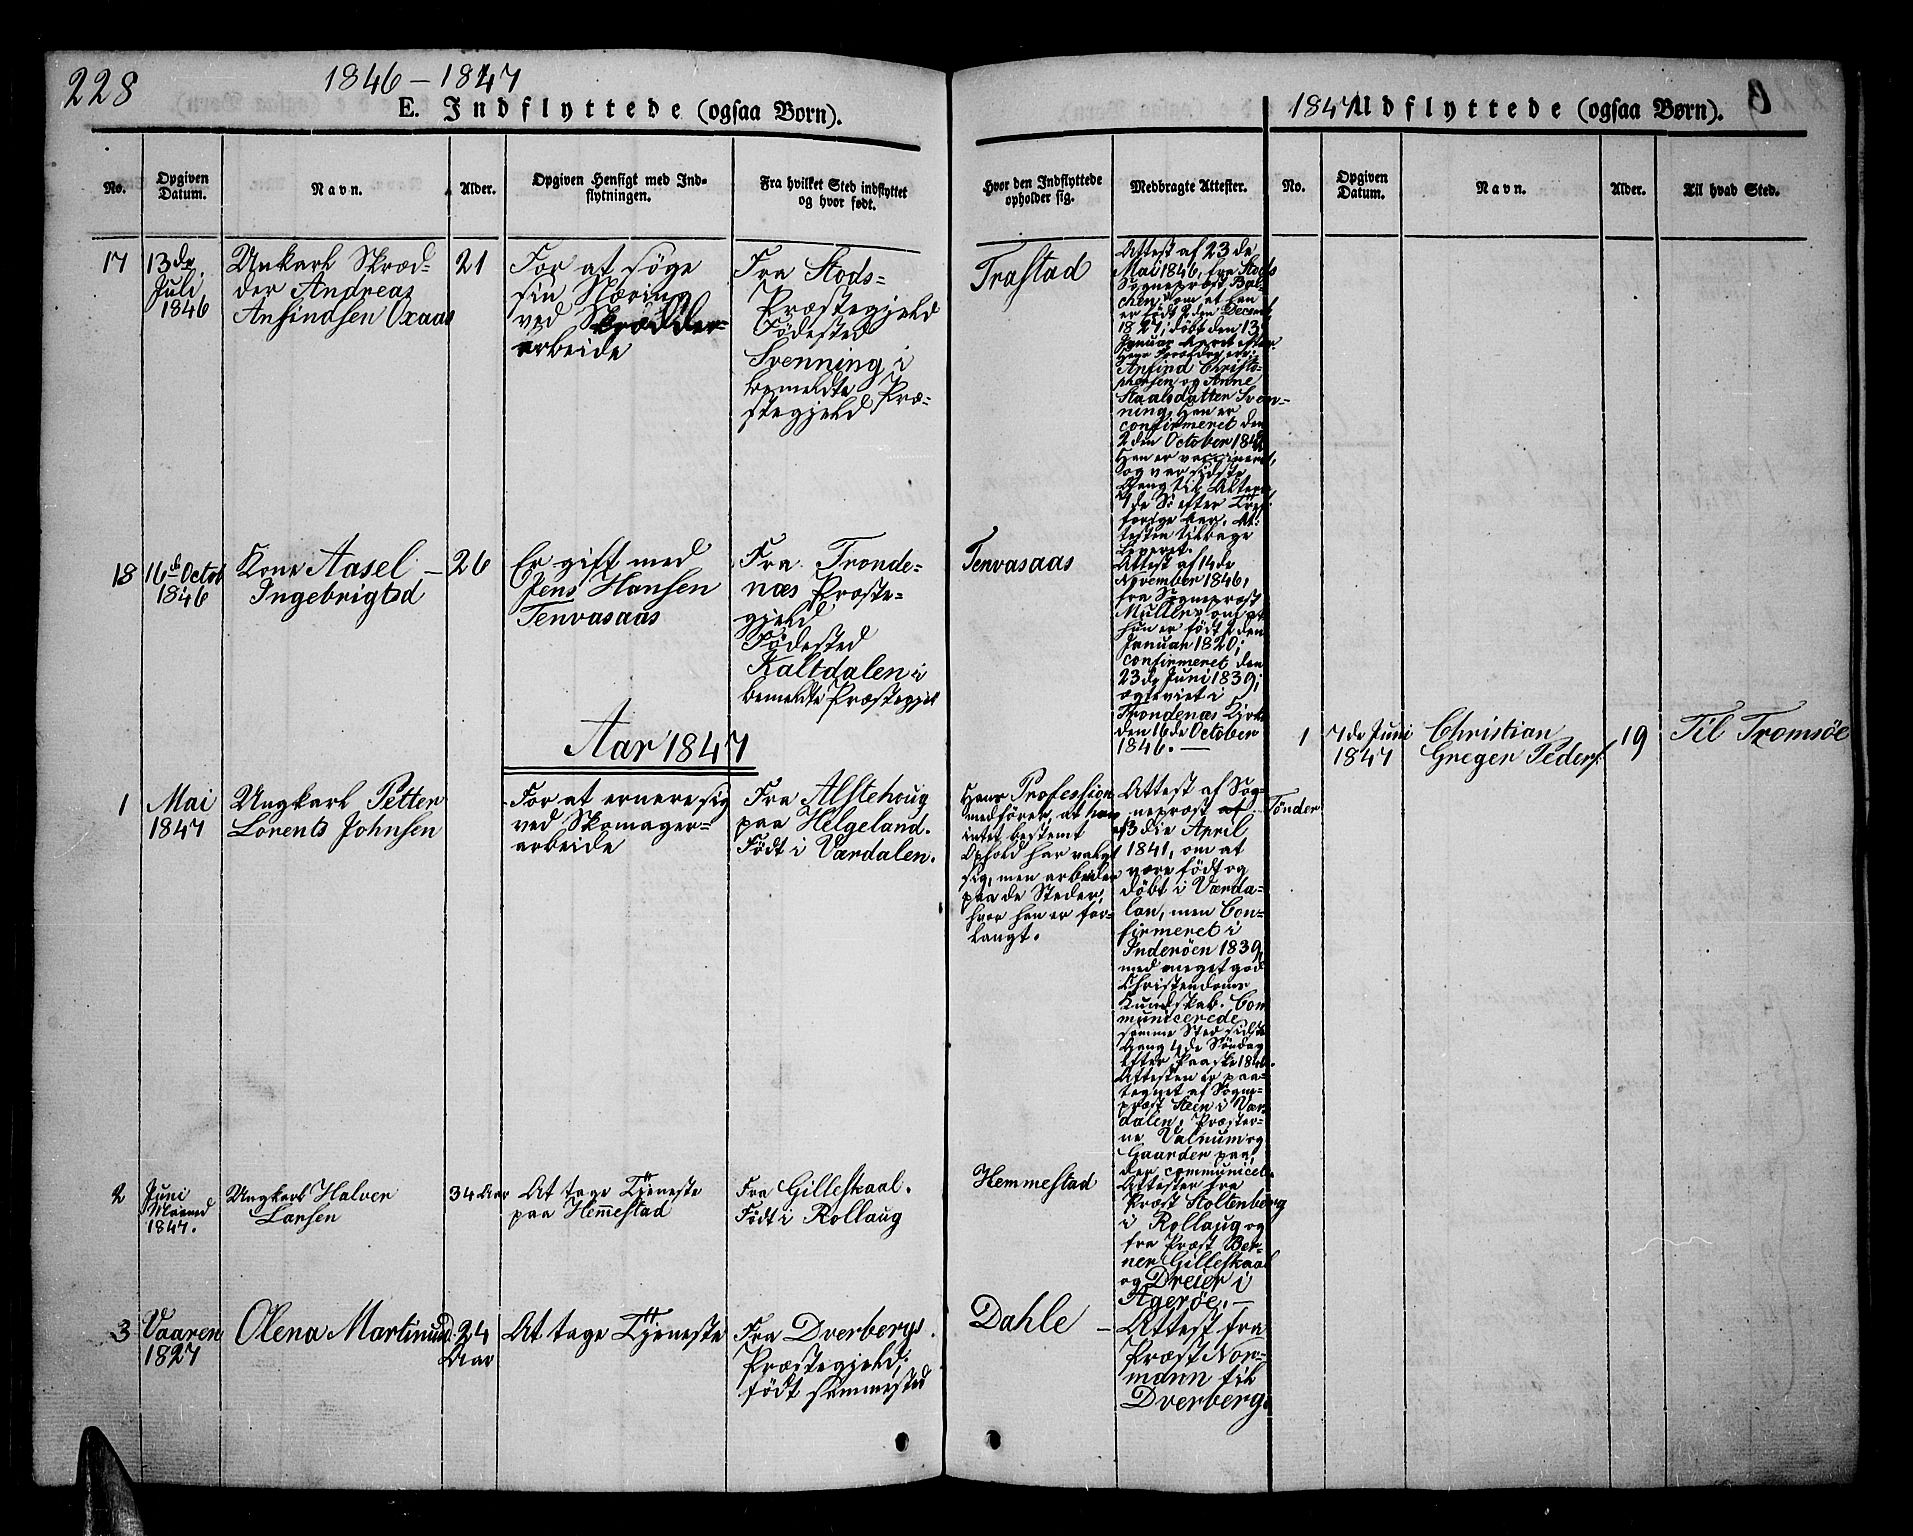 228
1846 – 1847
E. Indflyttede (ogsaa Børn).
No.
Opgiven Datum.
Navn.
Alder.
Opgiven Hensigt med Ind-
flytningen.
Fra hvilket Sted indflyttet
og hvor født.
Hvor den Indflyttede
opholder sig.
Medbragte Attester.
17
13de
Juli
1846
Unkarl Skræd-
der Andreas
Anfindsen Oxaas
21
For at søge
sin Næring
ved Skrædder-
arbeide
Fra Stods-
Præstegjeld
Fødested
Svenning i
bemeldte Præ-
stegjeld
Trastad
Attest af 23de
Mai 1846, fra Stods
Sogneprest Bal-
chen, om at han
er født 2den Decemb.
1827, døbt den 13
Januar Aaret efter.
Hans Forældre ere:
Anfind Christo-
phersen og Anne
Staalsdatter Sven-
ning, Han er
confirmeret den
2den October 184
Han er vaccineret,
og var sidste
Gang til Alters
de S. efter
forrige Aar. At-
testen tilbage
leveret.
18
16de Octob
1846
Kone Aasel
Ingebrigtsd
26
Er gift med
Jens Hansen
Tenvasaas
Fra Tronde-
næs Præste-
gjeld
Fødested
Kaltdalen i
bemeldte Præstegjel
Tenvasaas
Attest af 14de
November 1846,
fra Sognepræst
Müller, om at
hun er født 1 den
Januar 1820;
confirmeret den
23de Juni 1839;
ægteviet i
Trondenæs Kirke
den 16de October
1846. —
Aar 1847
1
Mai
1847
Ungkarl Petter
Lorents Johnsen
For at ernere sig
ved Skomager-
arbeide
Fra Alstehoug
paa Helgeland.
Født i Værdalen.
Hans Profession
medfører, at han
intet bestemt
Ophold har valgt
sig, men arbeider
paa de Steder,
hvor han er for-
langt.
Attest af Sog-
nepræst af Tønder
af 3die April
1841, om at
være født og
døbt i Værda-
len, men Con-
firmeret i
Inderøen 1839,
med meget god
Christendoms
Kundskab. Com
municerede
samme Sted sidste
Gang 4de Søndag
efter Paaske 184
Attesten er paa-
tegnet af Sogne-
præst Steen i Vær
dalen, Præster-
ne Valnum og
Gaarder paa
der communicat.
2
Juni
Maaned
1847.
Ungkarl Halvor
Larsen
34 Aar
At tage Tjeneste
paa Hemmestad
Fra Gilleskaal.
Født i Rollaug
Hemmestad
Attester fra
Præst Stoltenberg
i Rollaug og
fra Præst Ber-
ner Gilleskaal
og Dreier i
Agerøe. —
3
Vaaren
1847
Olena Martinusd.
24
Aar
At tage Tjeneste
Fra Dverbergs
Præstegjeld,
født sammested
Dahle –
Attest fra
Præst Nor-
mann til
Dverberg.
1847
Udflyttede (ogsaa Børn).
No.
Opgiven Datum.
Navn.
Alder.
Til hvad Sted.
1
7de Juni
1847
Christian
Greger Peders.
19
Til Tromsøe